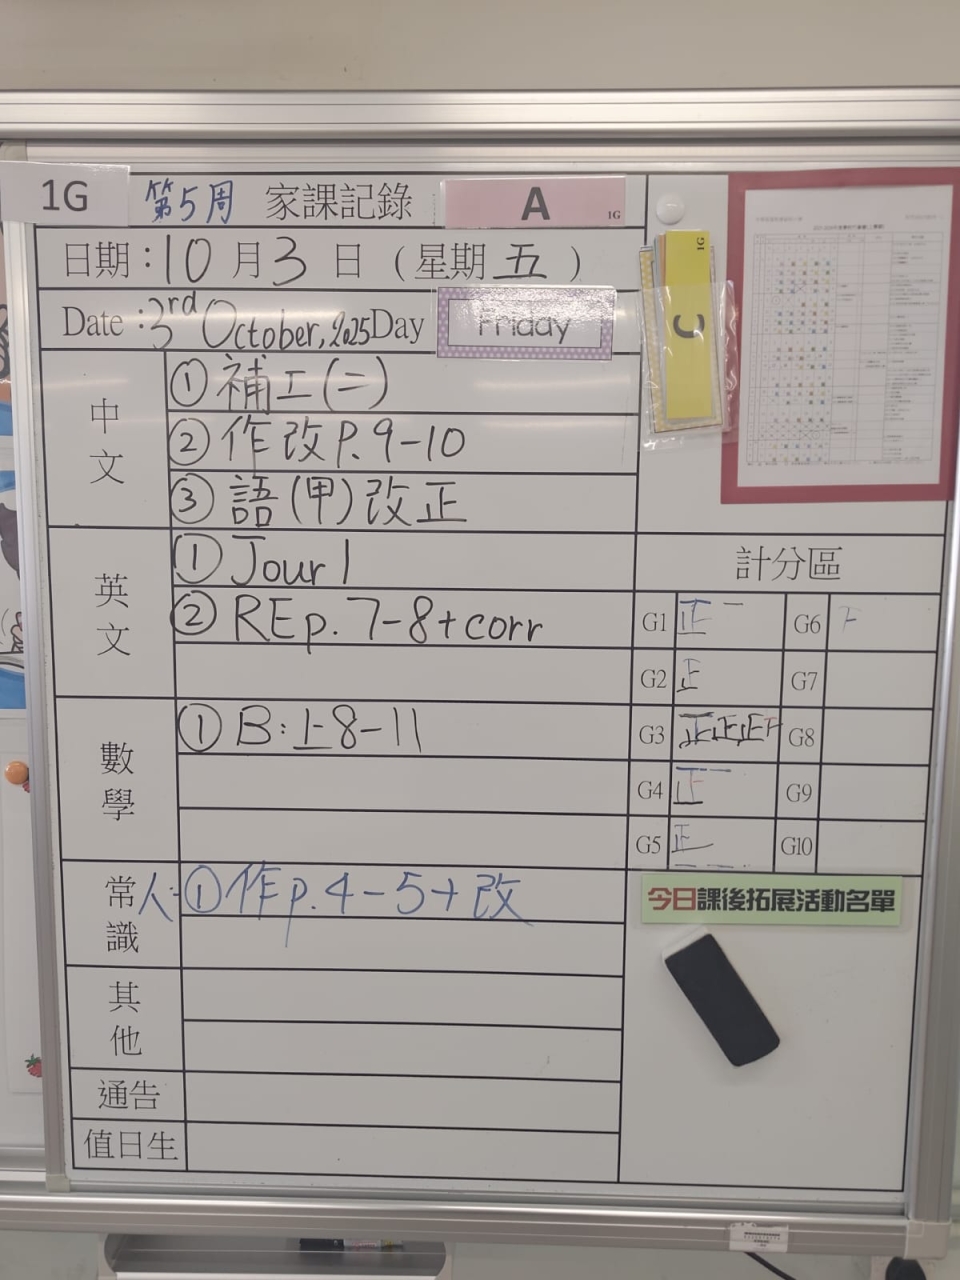 1G 第5周 家課記錄 A 1G
日期：10月3日（星期五）
Date：3rd October, 2025 Day Friday
C 1G
中文
① 補工(二)
② 作改P. 9-10
③ 語(甲)改正
英文
① Jour 1
② REp. 7-8+corr
數學
① B：上8-11
常識
人：① 作p. 4-5+改
其他
通告
值日生
計分區
G1 正一 G6
G2 正 G7
G3 G8
G4 G9
G5 正 G10
今日課後拓展活動名單